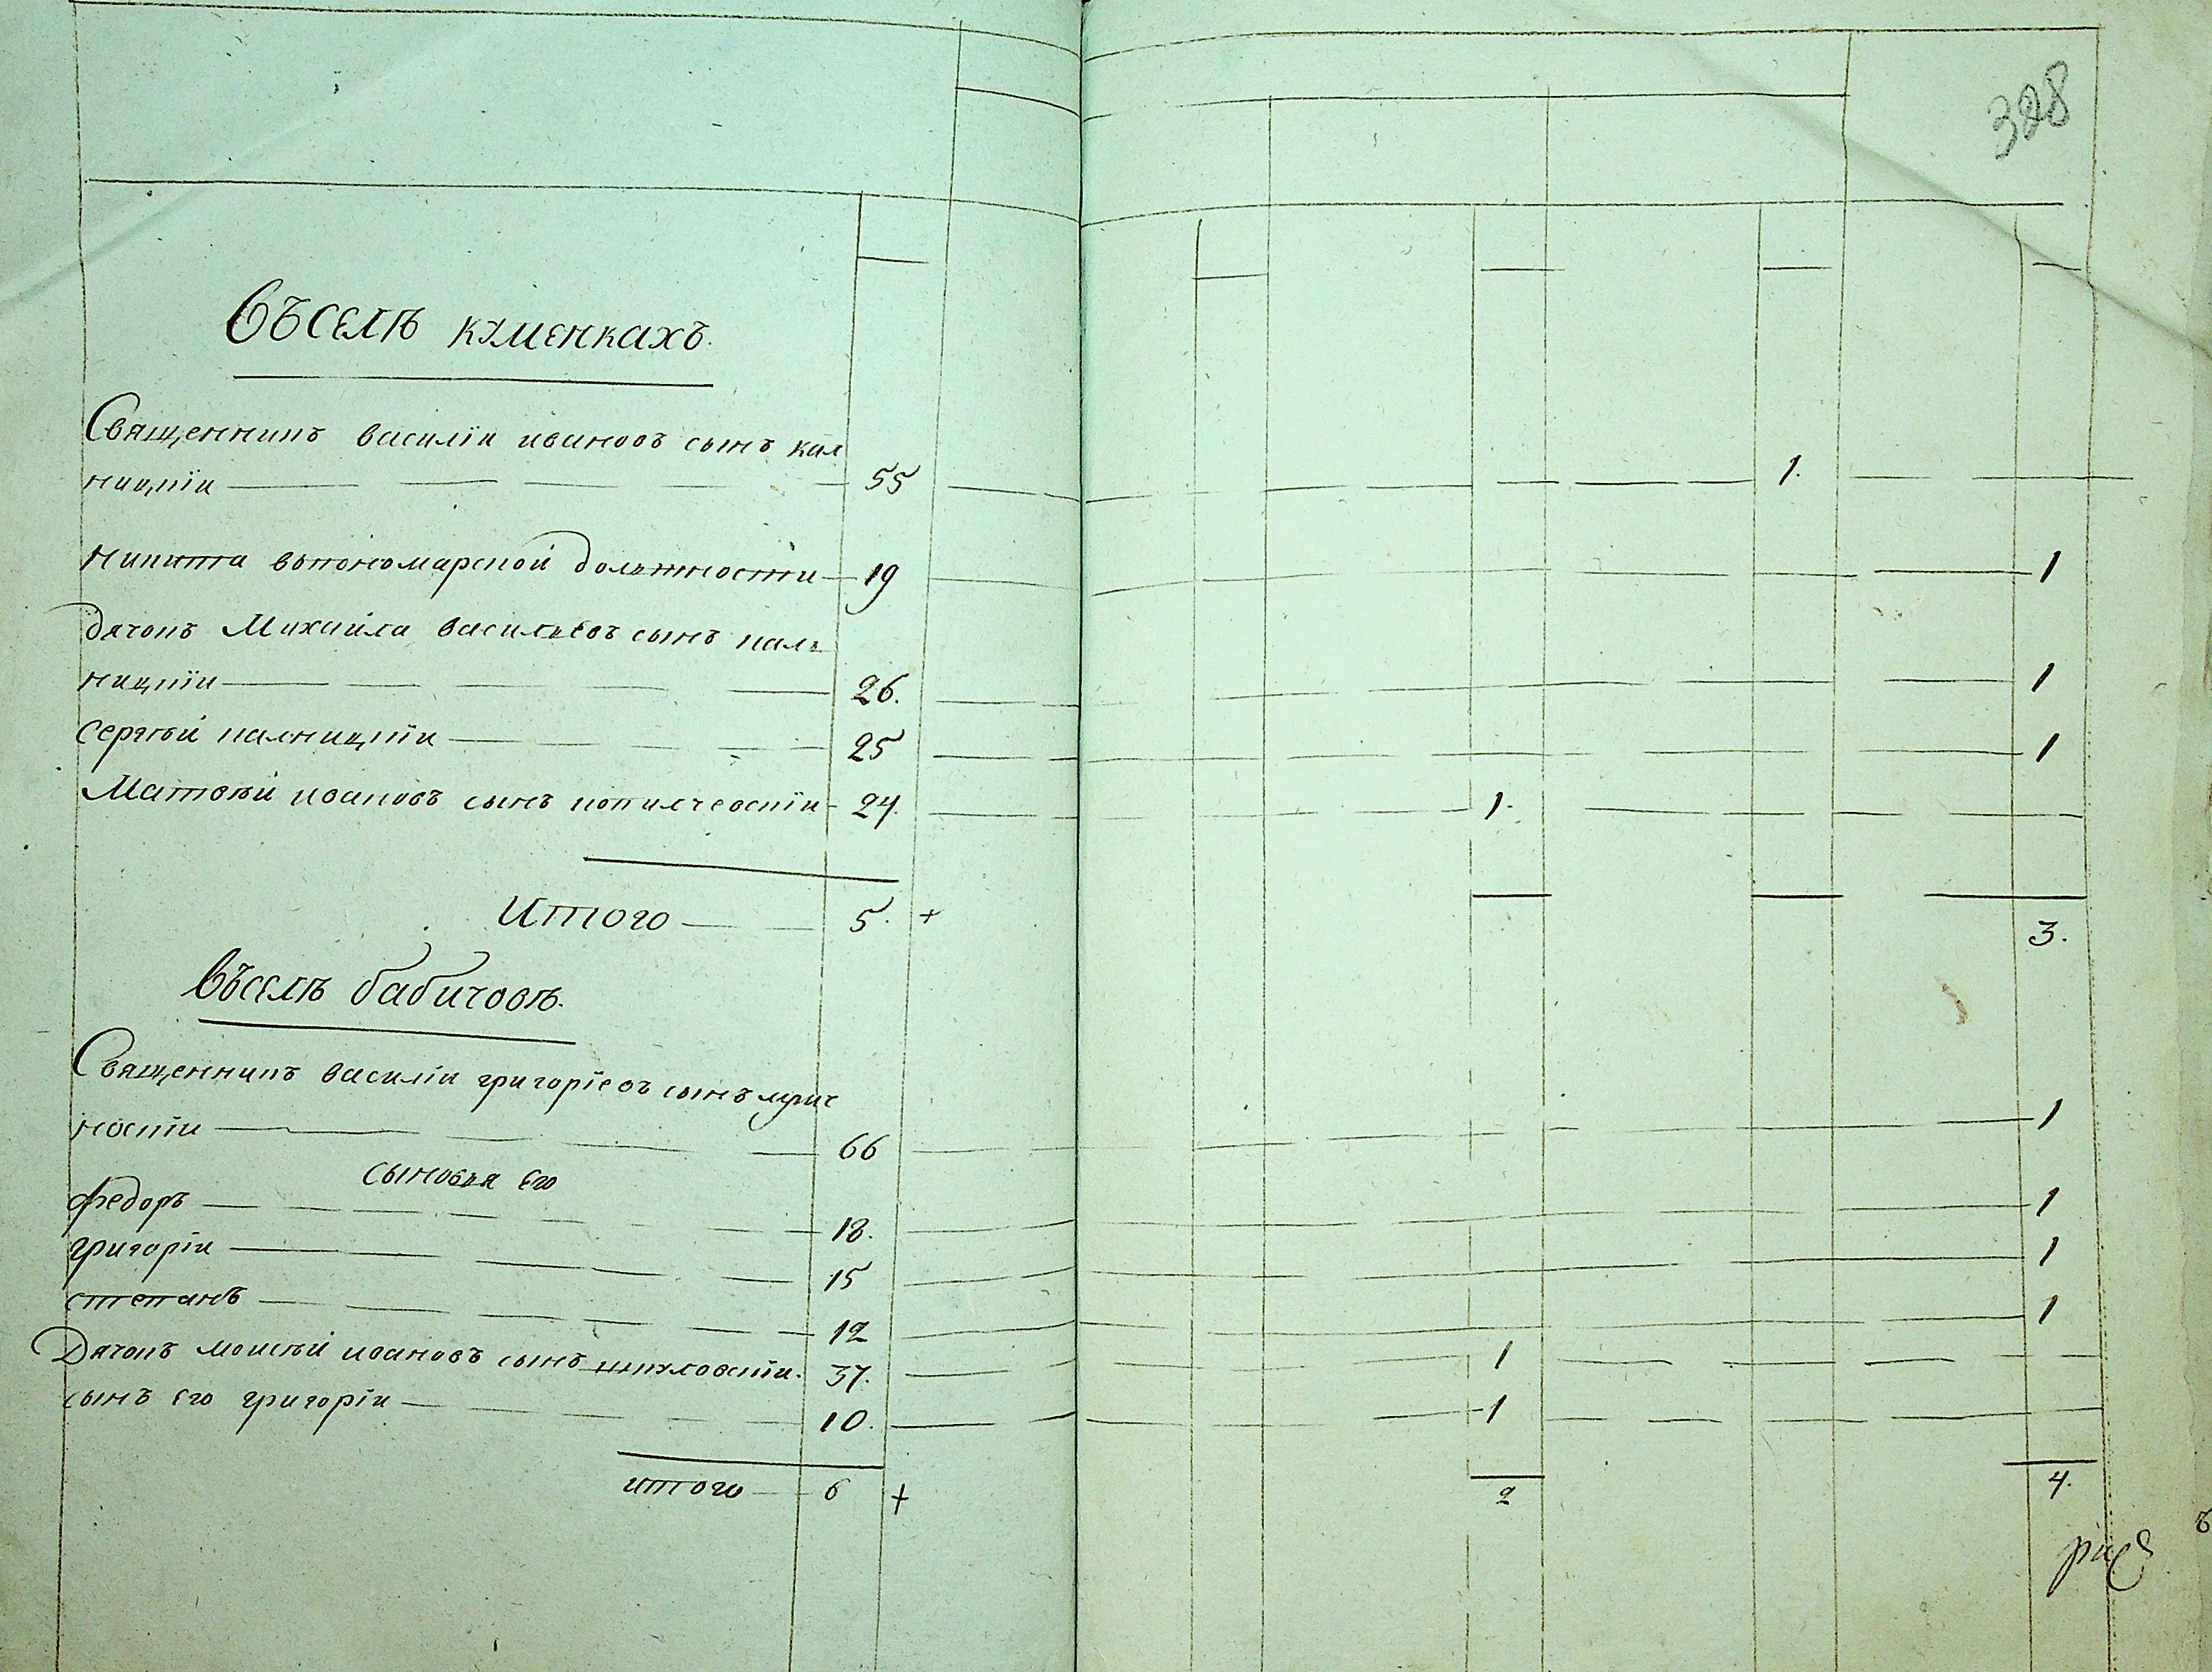 328
Въселѣ каменкахъ.
Священникъ василіи ивановъ сынъ кал
ницкіи 55 1.
Никита впономарской должности 19 1
дячокъ Михаила васильевъ сынъ каль
ницкіи 26. 1
Сергѣй калницкіи 25 1
Матѳѣй ивановъ сынъ 24. 1.
Итого 5. + 3.
Въселѣ бабичовѣ.
Священникъ василіи григоріевъ сынъ
66 1
Сыновья Его
Федоръ 18. 1
григоріи 15 1
степанъ 12 1
Дячокъ моисѣй ивановъ сынъ 37. 1
сынъ его григоріи 10. 1
итого 6 + 2 4.